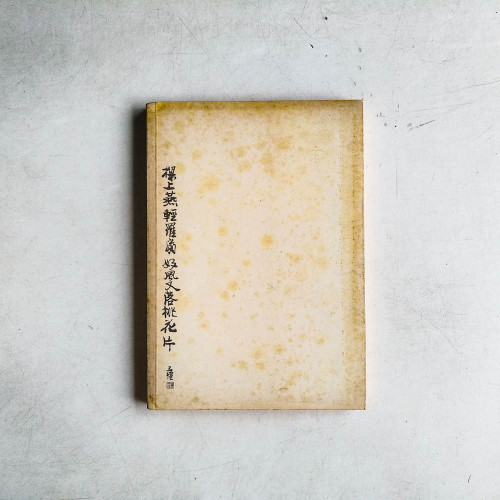 樑上燕輕羅扇好風又落桃花片